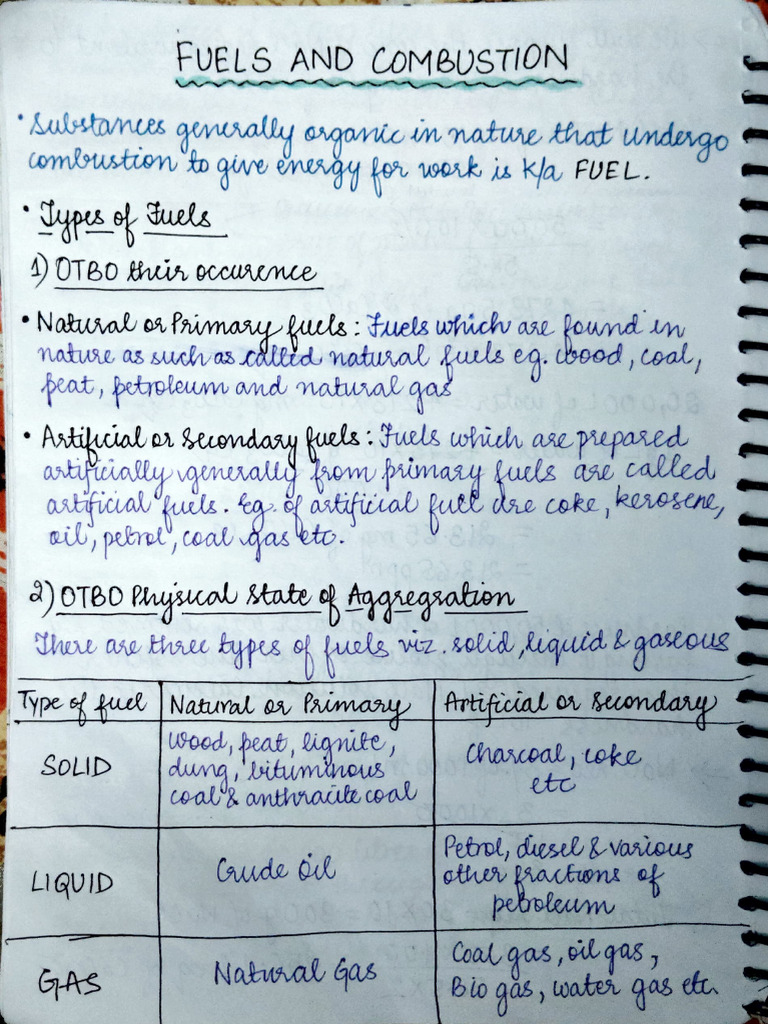 FUELS AND COMBUSTION
• Substances generally organic in nature that undergo
combustion to give energy for work is k/a FUEL.
• Types of Fuels
1) OTBO their occurence
• Natural or Primary fuels: Fuels which are found in
nature as such as called natural fuels eg. wood, coal,
peat, petroleum and natural gas
• Artificial or Secondary fuels: Fuels which are prepared
artificially, generally from primary fuels are called
artificial fuels. Eg. of artificial fuel are coke, kerosene,
oil, petrol, coal gas etc.
2) OTBO Physical State of Aggregration
There are three types of fuels viz. solid, liquid & gaseous
Type of fuel Natural or Primary Artificial or Secondary
SOLID
wood, peat, lignite,
dung, bituminous
coal & anthracite coal
Charcoal, coke
etc
LIQUID
Crude Oil
Petrol, diesel & various
other fractions of
petroleum
GAS
Natural Gas
Coal gas, oil gas,
Bio gas, water gas etc.